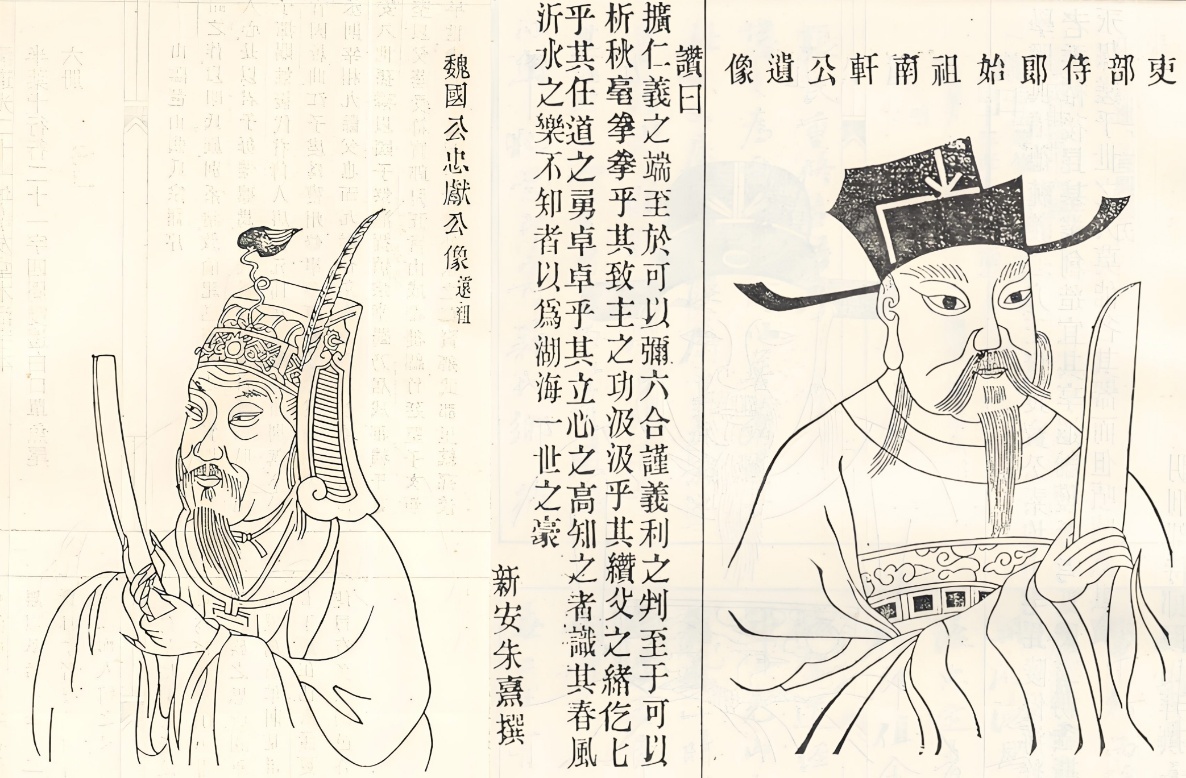 吏部侍郎始祖南軒公遺像
讚曰
擴仁義之端至於可以彌六合謹義利之判至于可以
析秋毫拳拳乎其致主之功汲汲乎其纘父之緒仡匕
乎其任道之勇卓卓乎其立心之高知之者識其春風
沂水之樂不知者以爲湖海一世之豪
新安朱熹撰
魏國公忠獻公像遠祖